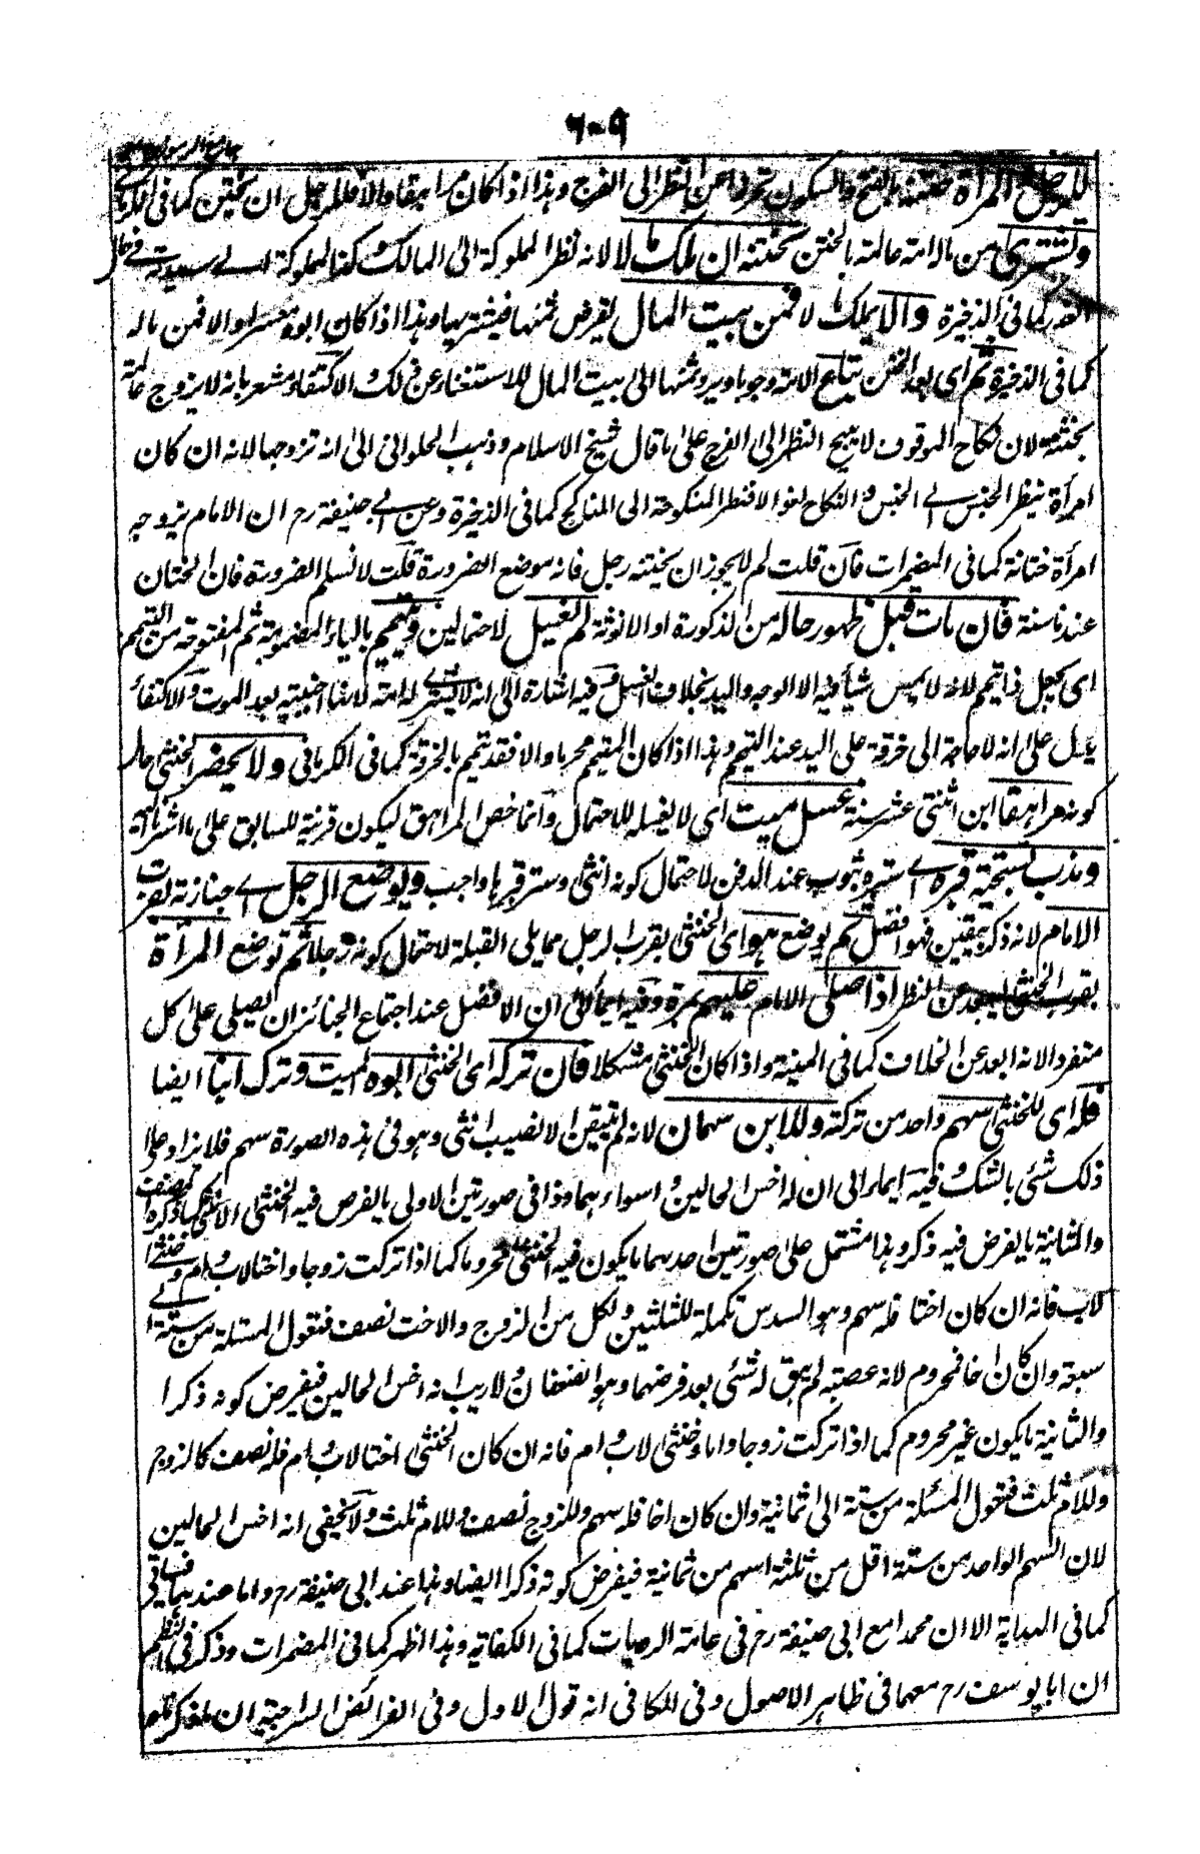 ٦٠٩
للرجل المرأة ختنه بالفتح والسكون تحرزا عن النظر الى الفرج وهذا اذا كان مراهقا والا فللرجل ان يختن كما فى
وتشترى من ماله امة عالمة بالختن تختنه ان ملك مالا لانه نظر المملوكة الى المالك وكذا المملوكة الى سيدته فى حال
العذر كما فى الذخيرة والا يملك مالا فمن بيت المال يقرض ثمنها فيشتريها وهذا اذا كان ابوه معسرا والا فمن ماله
كما فى الذخيرة ثم اى بعد الختن تباع الامة وجوبا ويرد ثمنها الى بيت المال للاستغناء عن ذلك والاكتفاء مشعر بانه لا يزوج عالمة
بختنه لان نكاح الموقوف لا يبيح النظر الى الفرج على ما قال شيخ الاسلام وذهب الحلوانى الى انه تزوجها لانه ان كان
امرأة ينظر الجنس الى الجنس والنكاح لغو الا فنظر المنكوحة الى الناكح كما فى الذخيرة وعن ابى حنيفة رح ان الامام يزوجه
امرأة ختانة كما فى المضمرات فان قلت لم لا يجوز ان يختنه رجل فانه موضع الضرورة قلت لا نسلم الضرورة فان الختان
عندنا سنة فان مات قبل ظهور حاله من الذكورة او الانوثة لم يغسل لاحتمالين وييمم بالياء المضمومة ثم المفتوحة من التيمم
اى يجعل ذا تيمم لانه لا يمس شيأ فيه الا الوجه واليد بخلاف الغسل وفيه اشارة الى انه لا يشترى له امة لانها اجنبية بعد الموت والاكتفاء
يدل على انه لا حاجة الى خرقة على اليد عند التيمم وهذا اذا كان الميمم محرما والا فقد تيمم بالخرقة كما فى الكرمانى ولا يحضر الخنثى حال
كونه مراهقا ابن اثنتى عشر سنة غسل ميت اى لا يغسله للاحتمال وانما خص المراهق ليكون قرينة للسابق على ما اشرنا اليه
وندب تسجية قبره اى ستره بثوب عند الدفن لاحتمال كونه انثى وستر قبرها واجب ويوضع الرجل فى جنازة بقرب
الامام لانه ذكر بيقين فهو افضل ثم يوضع هو اى الخنثى بقرب الرجل مما يلى القبلة لاحتمال كونه رجلا ثم توضع المرأة
بقرب الخنثى ليبعد عن النظر اذا صلى الامام عليهم بمرة وفيه ايماء الى ان الافضل عند اجتماع الجنائز ان يصلى على كل
منفردا لانه ابعد عن الخلاف كما فى المنية واذا كان الخنثى مشكلا فان تركه اى الخنثى ابوه الميت وترك ابنا ايضا
فله اى للخنثى سهم واحد من تركته وللابن سهمان لانه لم يتيقن الا نصيب انثى وهو فى هذه الصورة سهم فلا يزاد على
ذلك شئى بالشك وفيه ايماء الى ان له اخس الحالين واسوأهما وذا فى صورتين الاولى ما يفرض فيه الخنثى الانثى كما ذكره المصنف
والثانية ما يفرض فيه ذكر وهذا مشتمل على صورتين احدهما ما يكون فيه الخنثى محروما كما اذا تركت زوجا واختا لاب وام وخنثى
لاب فانه ان كان اختا فله سهم وهو السدس تكملة للثلثين ولكل من الزوج والاخت نصف فتعول المسئلة من ستة الى
سبعة وان كان اخا فمحروم لانه عصبة لم يبق له شئى بعد فرضهما وهو النصفان ولا ريب انه اخس الحالين فيفرض كونه ذكرا
والثانية ما يكون غير محروم كما اذا تركت زوجا واما وخنثى لاب وام فانه ان كان الخنثى اختا لاب وام فله نصف كالزوج
وللام ثلث فتعول المسئلة من ستة الى ثمانية وان كان اخا فله سهم وللزوج نصف وللام ثلث ولا يخفى انه اخس الحالين
لان السهم الواحد من ستة اقل من ثلثة اسهم من ثمانية فيفرض كونه ذكرا ايضا وهذا عند ابى حنيفة رح واما عندهما
كما فى الهداية الا ان محمدا مع ابى حنيفة رح فى عامة الروايات كما فى الكفاية وهذا اظهر كما فى المضمرات وذكر فى النظم
ان ابا يوسف رح معهما فى ظاهر الاصول وفى الكافى انه قوله الاول وفى الفرائض السراجية ان